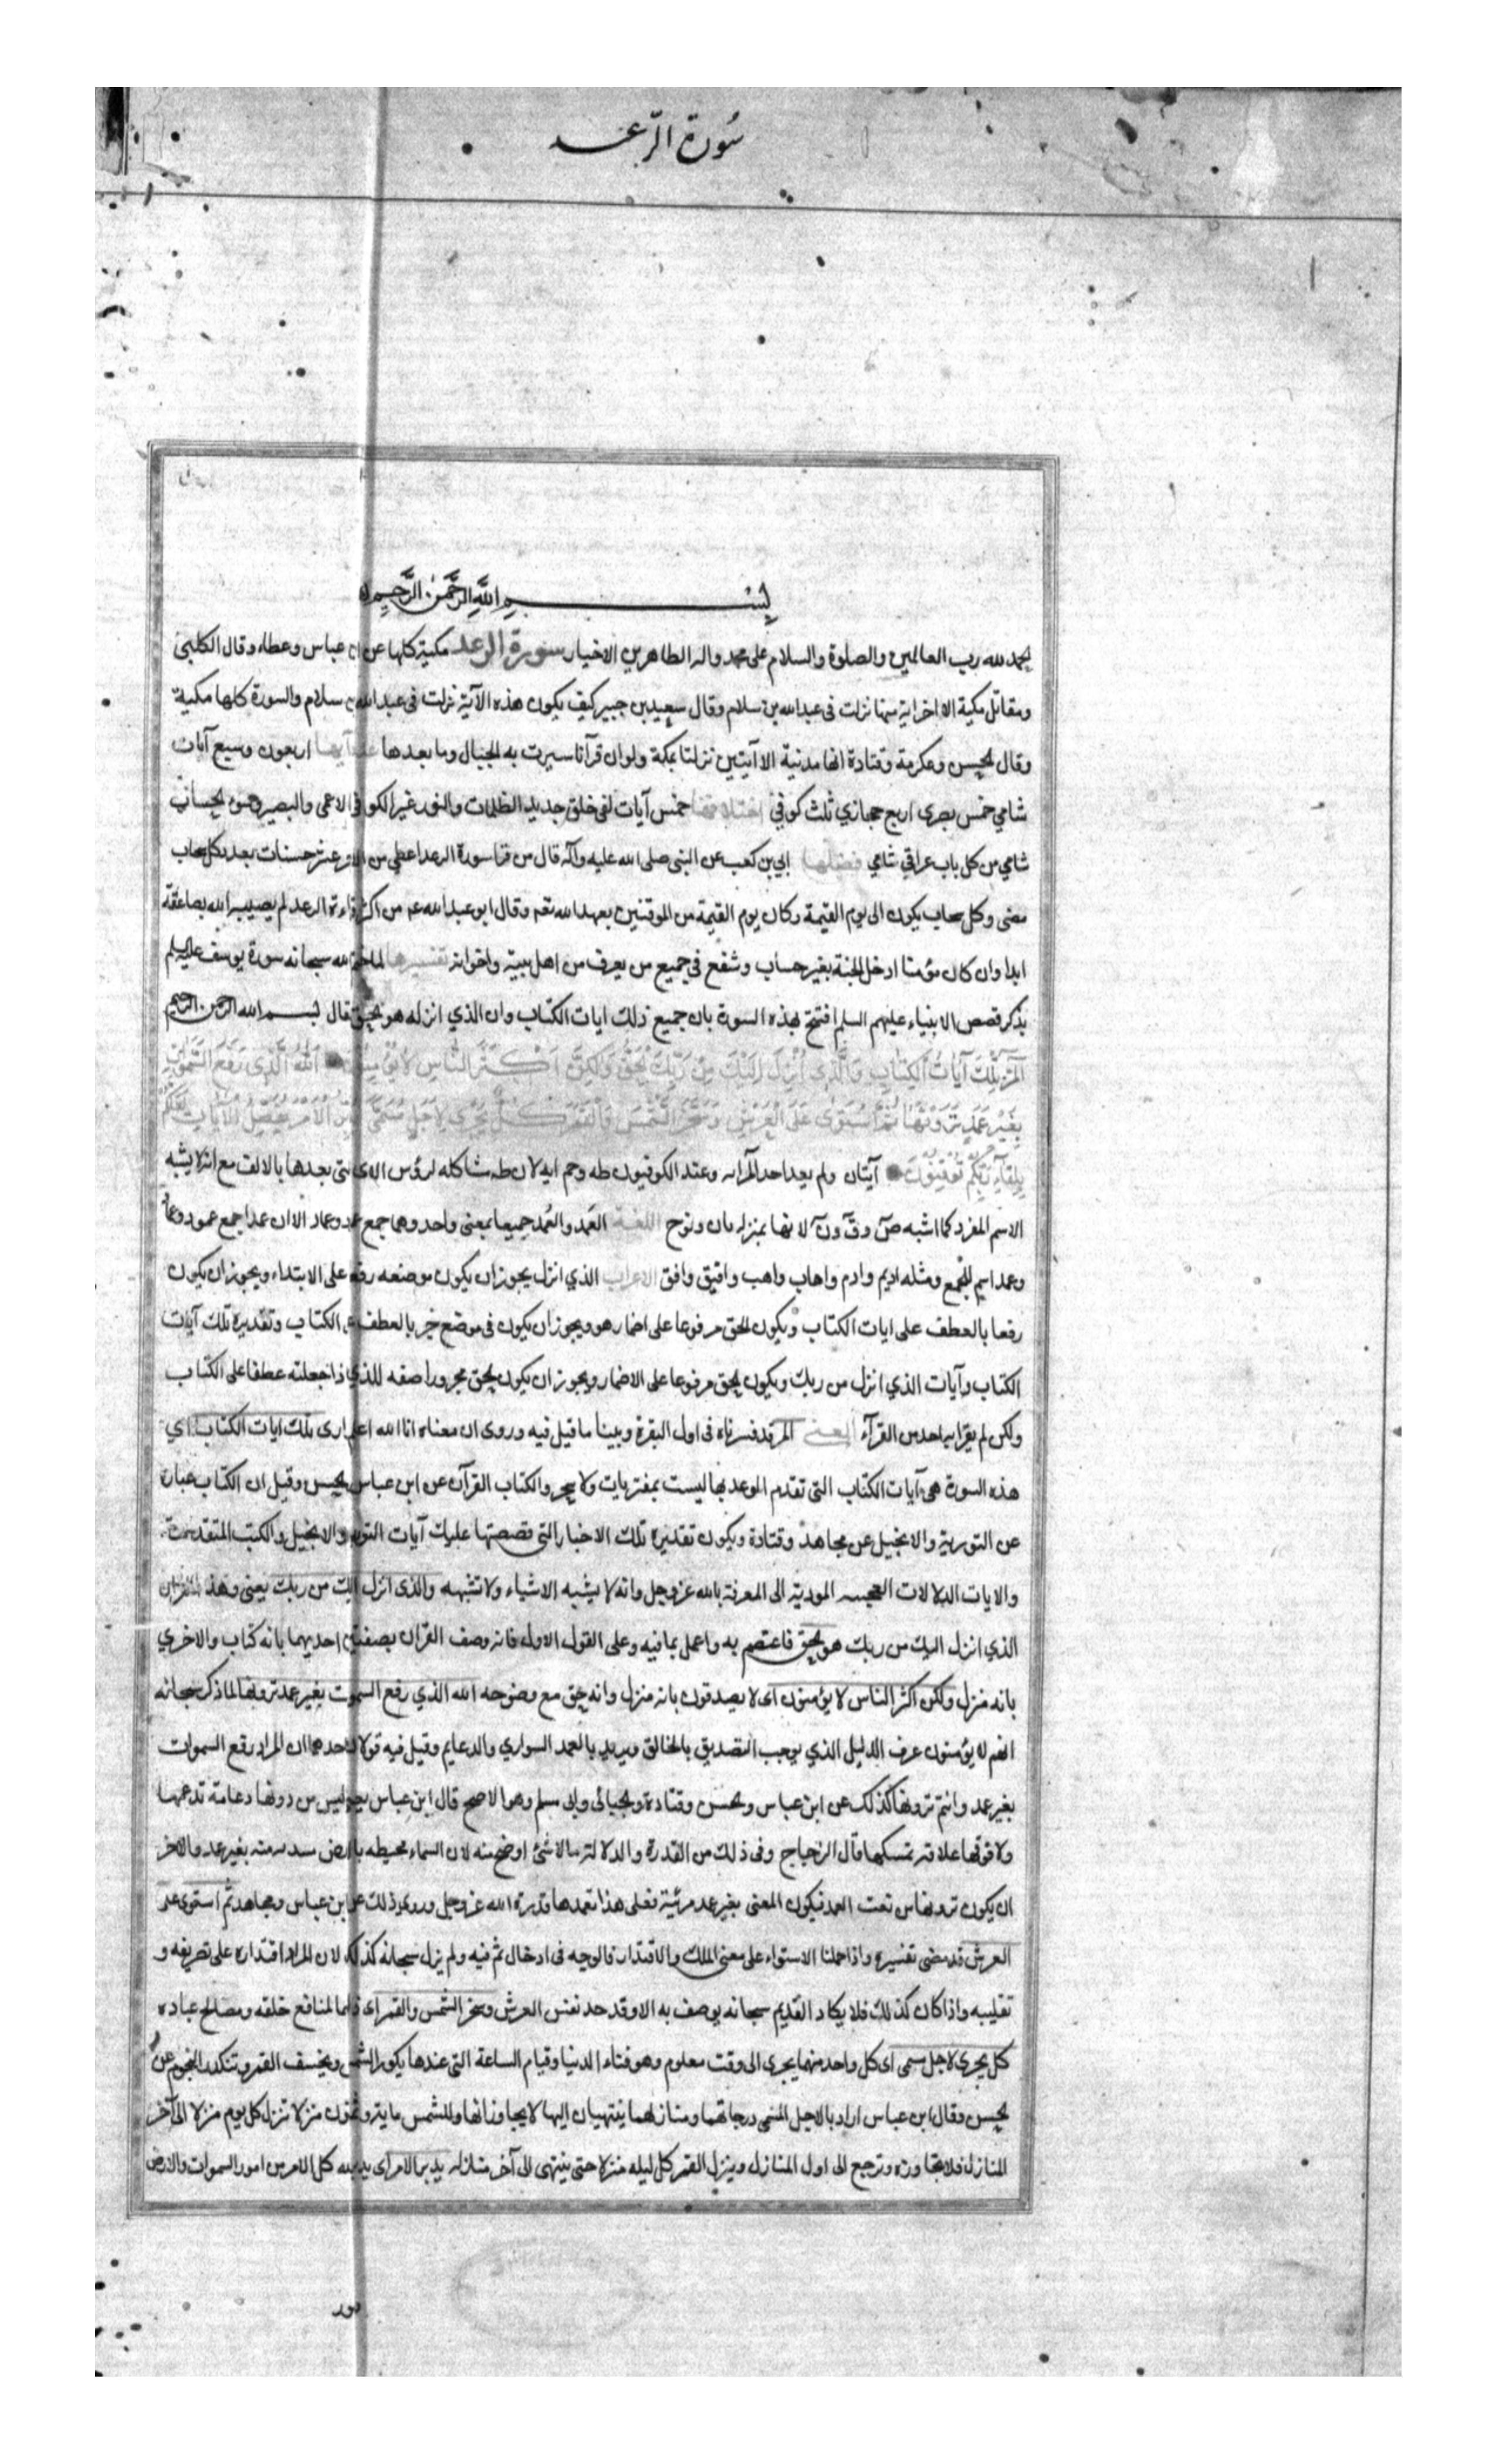 سورة الرعد
بسم الله الرحمن الرحيم
الحمد لله رب العالمين والصلوة والسلام على محمد واله الطاهرين الاخيار سورة الرعد مكية كلها عن ابن عباس وعطاء وقال الكلبي
ومقاتل مكية الا اخر اية منها نزلت في عبد الله بن سلام وقال سعيد بن جبير كيف يكون هذه الآية نزلت في عبد الله بن سلام والسورة كلها مكية
وقال الحسن وعكرمة وقتادة انها مدنية الا آيتين نزلتا بمكة ولو ان قرآنا سيرت به الجبال وما بعدها عدد آيها اربعون وسبع آيات
شامي خمس بصري اربع حجازي ثلث كوفي اختلافها خمس آيات لفي خلق جديد الظلمات والنور غير الكوفي الاعمى والبصير سوء الحساب
شامي من كل باب عراقي شامي فضلها ابي بن كعب عن النبي صلى الله عليه وآله قال من قرا سورة الرعد اعطي من الاجر عشر حسنات بعدد كل سحاب
مضى وكل سحاب يكون الى يوم القيمة وكان يوم القيمة من الموقنين بعهد الله تعم وقال ابو عبد الله عم من اكثر قراءة الرعد لم يصيبه الله بصاعقة
ابدا وان كان مؤمنا ادخل الجنة بغير حساب وشفع في جميع من يعرف من اهل بيته واخوانه تفسيرها لما ختم الله سبحانه سورة يوسف عليه السلم
بذكر قصص الانبياء عليهم السلم افتتح هذه السورة بان جميع ذلك ايات الكتاب وان الذي انزله هو الحق فقال بسم الله الرحمن الرحيم
آلمر تِلْكَ آيَاتُ الْكِتَابِ وَالَّذِي أُنْزِلَ إِلَيْكَ مِنْ رَبِّكَ الْحَقُّ وَلَكِنَّ أَكْثَرَ النَّاسِ لَا يُؤْمِنُونَ اَللهُ الَّذِي رَفَعَ السَّمٰوَاتِ
بِغَيْرِ عَمَدٍ تَرَوْنَهَا ثُمَّ اسْتَوَى عَلَى الْعَرْشِ وَسَخَّرَ الشَّمْسَ وَالْقَمَرَ كُلٌّ يَجْرِي لِأَجَلٍ مُسَمًّى يُدَبِّرُ الْأَمْرَ يُفَصِّلُ الْآيَاتِ لَعَلَّكُمْ
بِلِقَاءِ رَبِّكُمْ تُوقِنُونَ آيتان ولم يعد احد المر اية وعند الكوفيون طه وحم ايه لان طه مشاكله لرؤس الاى التي بعدها بالالف مع انه لا يشبه
الاسم المفرد كما اشبه ص وق ون لانها بمنزله باب ونوح اللغة العَمد والعُمد جميعا بمعنى واحد وهما جمع عمود وعماد الا ان عمدا جمع عمود وعماد
وعمد اسم للجمع ومثله اديم وادم واهاب واهب وافيق وافق الاعراب الذي انزل يجوز ان يكون موضعه رفع على الابتداء ويجوز ان يكون
رفعا بالعطف على ايات الكتاب ويكون الحق مرفوعا على اضمار هو ويجوز ان يكون في موضع جر بالعطف على الكتاب وتقديره تلك آيات
الكتاب وآيات الذي انزل من ربك ويكون الحق مرفوعا على الاضمار ويجوز ان يكون الحق مجرورا صفه للذي اذا جعلته عطفا على الكتاب
ولكن لم يقرا به احد من القرآء المعنى المر قد فسرناه في اول البقرة وبينا ما قيل فيه وروى ان معناه انا الله اعلم ارى تلك ايات الكتاب اي
هذه السورة هي آيات الكتاب التي تقدم الوعد بها ليست بمفتريات ولا سحر والكتاب القرآن عن ابن عباس والحسن وقيل ان الكتاب عبارة
عن التورية والانجيل عن مجاهد وقتادة ويكون تقديره تلك الاخبار التي قصصتها عليك آيات التورية والانجيل والكتب المتقدمة
والايات الدلالات العجيبه المودية الى المعرفة بالله عز وجل وانه لا يشبه الاشياء ولا تشبهه والذى انزل اليك من ربك يعني وهذا القران
الذي انزل اليك من ربك هو الحق فاعتصم به واعمل بما فيه وعلى القول الاول فانه وصف القران بصفتين احديهما بانه كتاب والاخري
بانه منزل ولكن اكثر الناس لا يؤمنون اى لا يصدقون بانه منزل وانه حق مع وضوحه الله الذي رفع السموت بغير عمد ترونها لما ذكر سبحانه
انهم لا يؤمنون عرف الدليل الذي يوجب التصديق بالخالق ويريد بالعمد السواري والدعايم وقيل فيه قولان احدهما ان المراد رفع السموات
بغير عمد وانتم ترونها كذلك عن ابن عباس والحسن وقتادة والجبائي وابي مسلم وهو الاصح قال ابن عباس يعني ليس من دونها دعامة تدعمها
ولا فوقها علاقه تمسكها قال الزجاج وفي ذلك من القدرة والدلالة ما لا شئ اوضح منه لان السماء محيطه بالارض منه بغير عمد والاخر
ان يكون ترونها من نعت العمد فيكون المعنى بغير عمد مرئية فعلى هذا تعمدها قدرة الله عز وجل وروى ذلك عن ابن عباس ومجاهد ثم استوى على
العرش قد مضى تفسيره واذا حملنا الاستواء على معنى الملك والاقتدار فالوجه في ادخال ثم فيه ولم يزل سبحانه كذلك لان المراد اقتداره على تصريفه و
تقليبه واذا كان كذلك فلا يكاد القديم سبحانه يوصف به الا وقد حد نفس العرش وسخر الشمس والقمر اى ذللهما لمنافع خلقه ومصالح عباده
كل يجري لاجل مسمى اى كل واحد منهما يجرى الى وقت معلوم وهو فناء الدنيا وقيام الساعة التي عندها يكور الشمس ويخسف القمر وتنكدر النجوم عن
الحسن وقال ابن عباس اراد بالاجل المسمى درجاتهما ومنازلهما ينتهيان اليها لا يجاوزانها وللشمس ماية وثمانون منزلا تنزل كل يوم منزلا الى آخر
المنازل فلا تجاوزه وترجع الى اول المنازل وينزل القمر كل ليله منزلا حتى ينتهى الى آخر منازله يدبر الامر اى يدبر الله كل الامر من امور السموات والارض